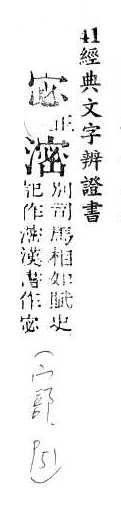 41經典文字辨證書
宓正
滵別司馬相如賦史
記作滵漢書作宓
(宀部 P51)